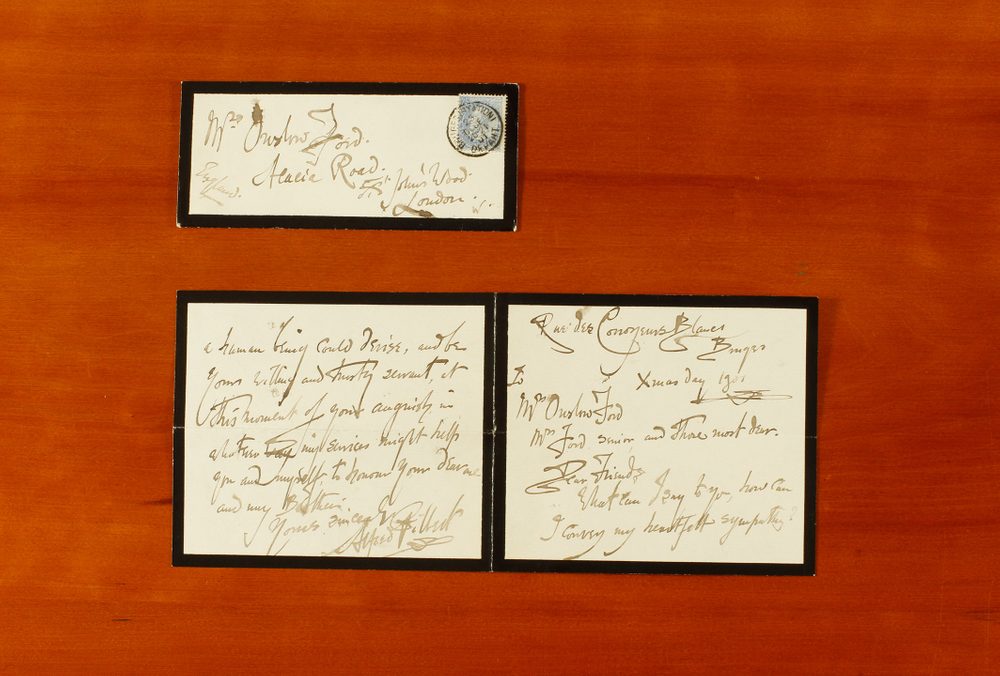 Mrs Onslow Ford.
Acacia Road.
St John's Wood
London. W.
England.
a human being could devise, and be
Yours willing and trusty servant, at
this moment of your anguish in
whatever my services might help
you and myself to honour your dear one
and my Brother.
Yours sincerely
Alfred Gilbert
Rue des Corroyeurs Blancs
Bruges
Xmas Day 1901
To
Mrs Onslow Ford
Mrs Ford senior and those most dear.
Dear Friends,
What can I say to you, how can
I convey my heartfelt sympathy?